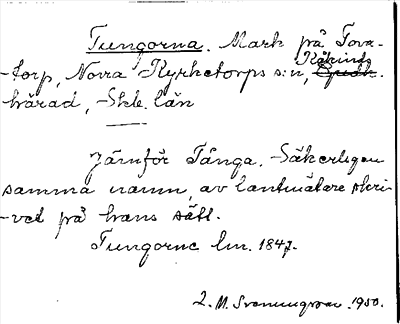 Tungorna. Mark på Tova-
-torp, Norra Kyrketorps s:n, Kåkinds
härad, Skbl. län
Jämför Tånga. Säkerligen
samma namn, av lantmätare skri-
-vet på hans sätt.
Tungorne lm. 1847.
L. M. Svenungsson. 1950.